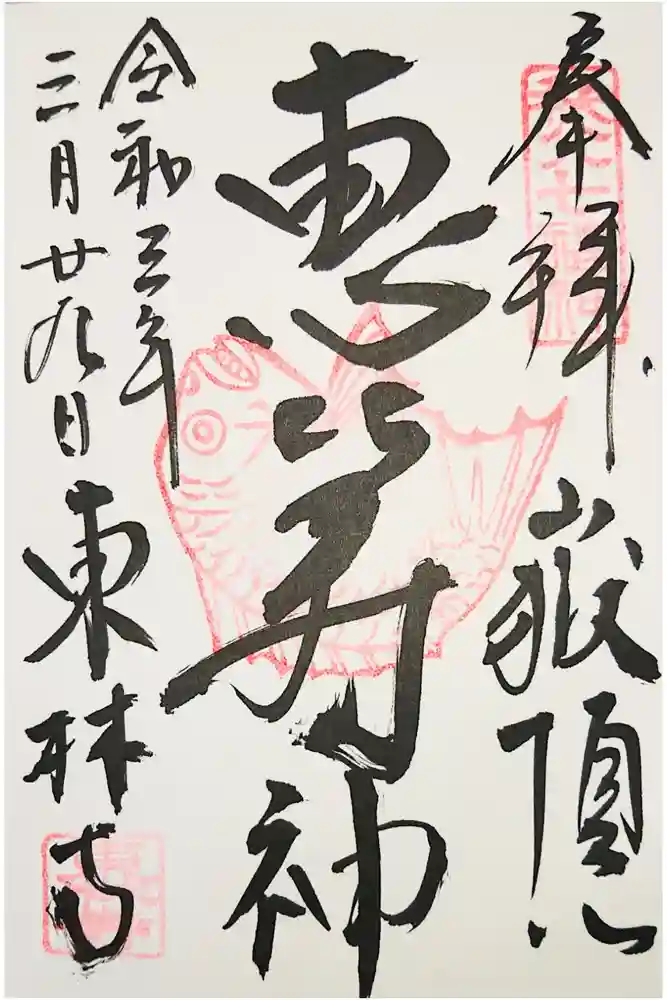 奉拝 嶽頂山
恵比寿神
令和三年
三月廿九日
東林寺